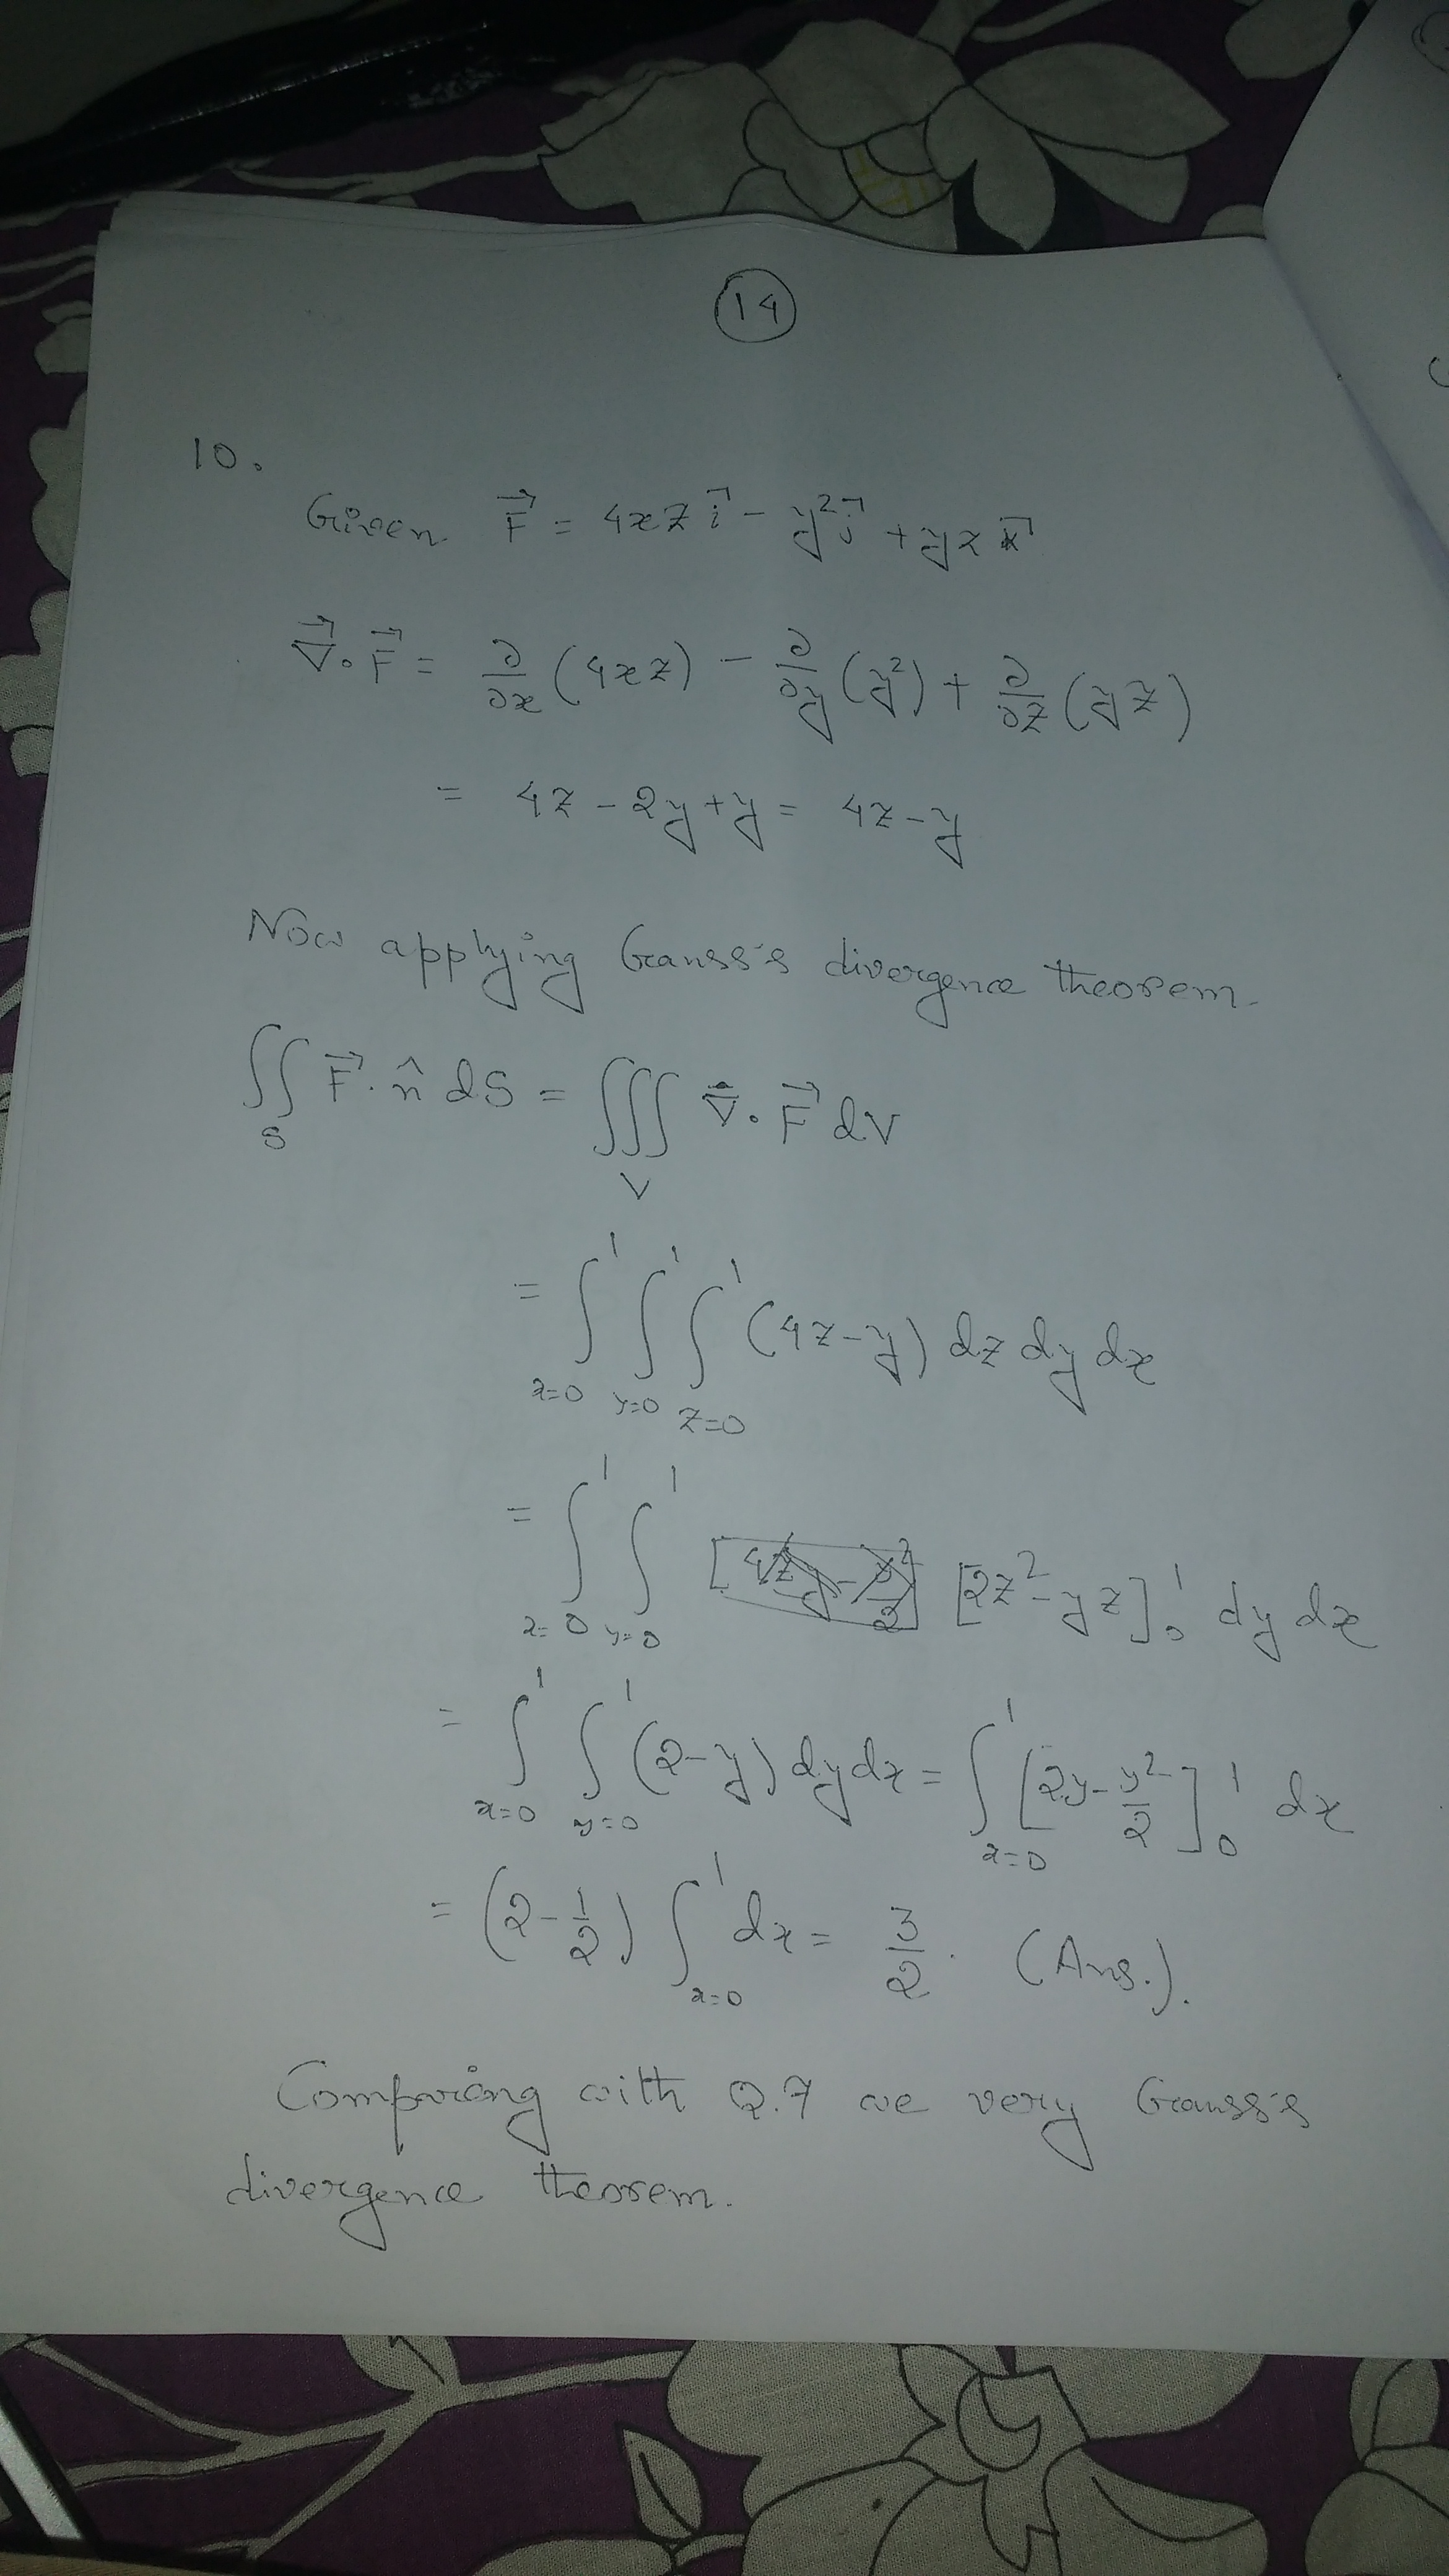 14
10.
Given F⃗ = 4xz i⃗ - y² j⃗ + yz k⃗
∇⃗. F⃗ = ∂/∂x (4xz) - ∂/∂y (y²) + ∂/∂z (yz)
= 4z - 2y + y = 4z - y
Now applying Gauss's divergence theorem
∬_S F⃗. n̂ dS = ∭_V ∇⃗. F⃗ dV
= ∫_{x=0}^1 ∫_{y=0}^1 ∫_{z=0}^1 (4z - y) dz dy dx
= ∫_{x=0}^1 ∫_{y=0}^1 [2z² - yz]_0^1 dy dx
= ∫_{x=0}^1 ∫_{y=0}^1 (2 - y) dy dx = ∫_{x=0}^1 [2y - y²/2]_0^1 dx
= (2 - 1/2) ∫_{x=0}^1 dx = 3/2 . (Ans.).
Comparing with Q.7 we very Gauss's
divergence theorem.